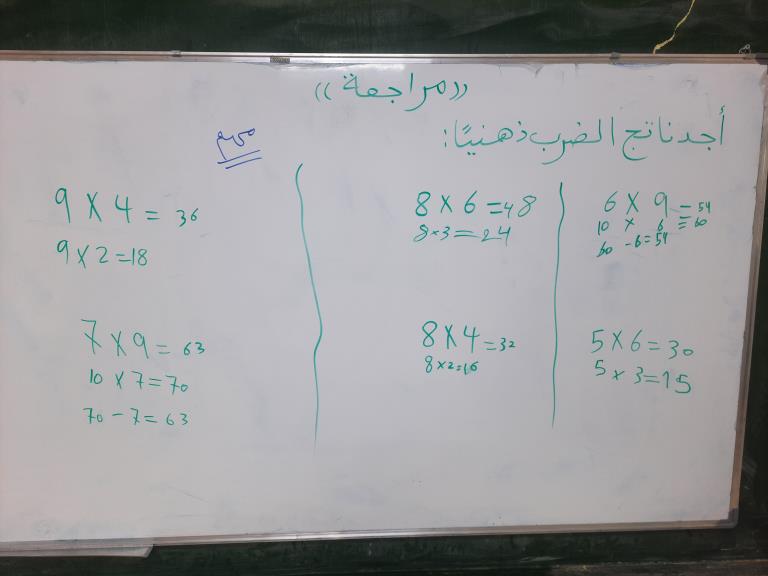 ((مراجعة))
أجد ناتج الضرب ذهنيًا:
6 × 9 = 54
10 × 6 = 60
60 - 6 = 54
5 × 6 = 30
5 × 3 = 15
8 × 6 = 48
8 × 3 = 24
8 × 4 = 32
8 × 2 = 16
9 × 4 = 36
9 × 2 = 18
7 × 9 = 63
10 × 7 = 70
70 - 7 = 63